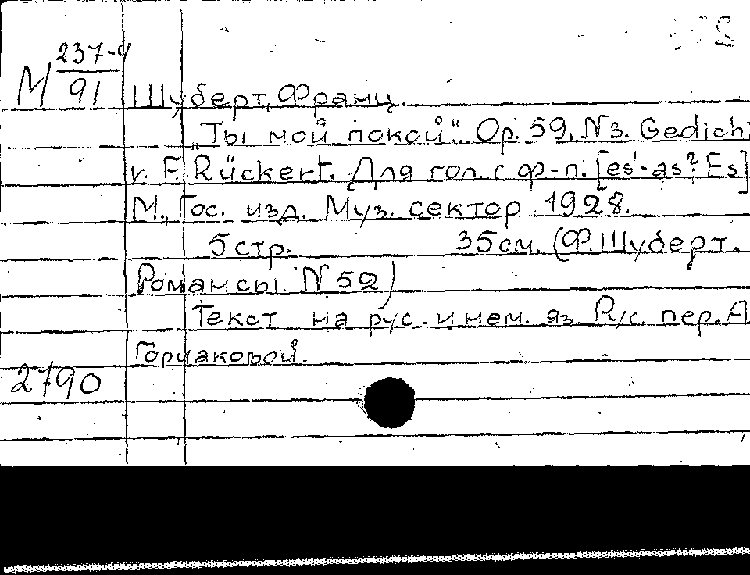 М 237-4
91
Шуберт, Франц.
„Ты мой покой". Op. 59, N3. Gedicht
v. F. Rückert. Для гол. с ф-п. [es'-as² Es]
М., Гос. изд. Муз. сектор 1928.
5 стр. 35 см. (Ф. Шуберт.
Романсы. N 52)
Текст на рус. и нем. яз. Рус. пер. А
Горчаковой.
2790